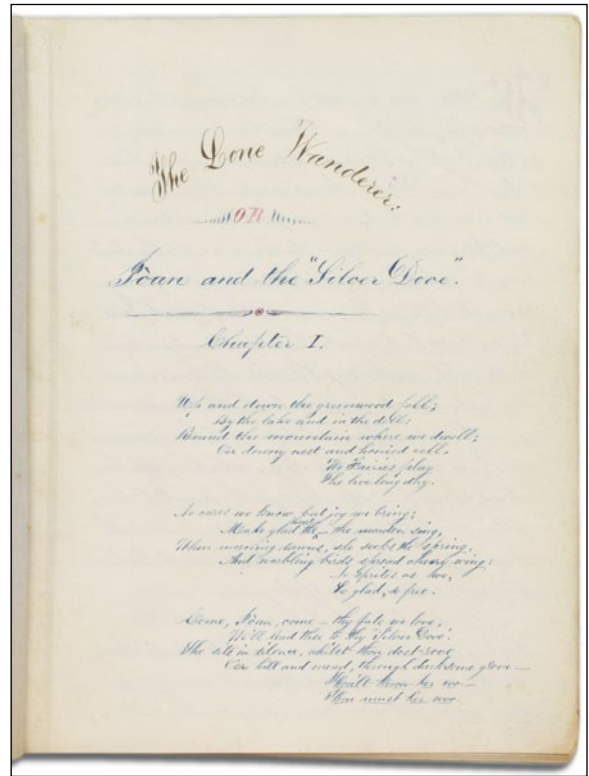 The Lone Wanderer:
OR
Ioan and the "Silver Dove".
Chapter I.
Up and down the greenwood fell;
By the lake and in the dell:
Round the mountain where we dwell;
O'er downy nest and honied cell.
We Fairies play
The live long day.
No cares we know, but joy we bring;
Make glad the hour the maiden sing,
When morning dawns, she seeks the spring,
And warbling birds spread cheery wing:
No Sprites as we,
So glad, so free.
Come, Ioan, come – thy fate we love,
We'll lead thee to thy 'Silver Dove'.
She sits in silence, whilst thou dost rove
O'er hill and mead, through darksome grove —
Thou'lt know her
Thou must her woo.